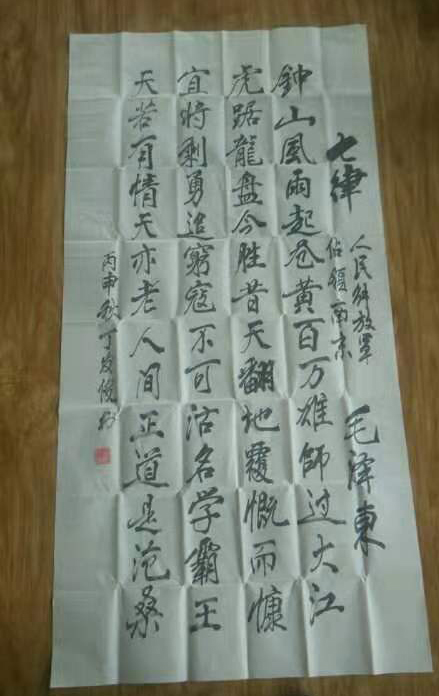 七律
人民解放军
佔領南京
毛泽東
鈡山風雨起苍黄百万雄師过大江
虎踞龍盘今胜昔天翻地覆慨而慷
宜将剩勇追窮寇不可沽名学霸王
天若有情天亦老人间正道是沧桑
丙申秋丁发俊